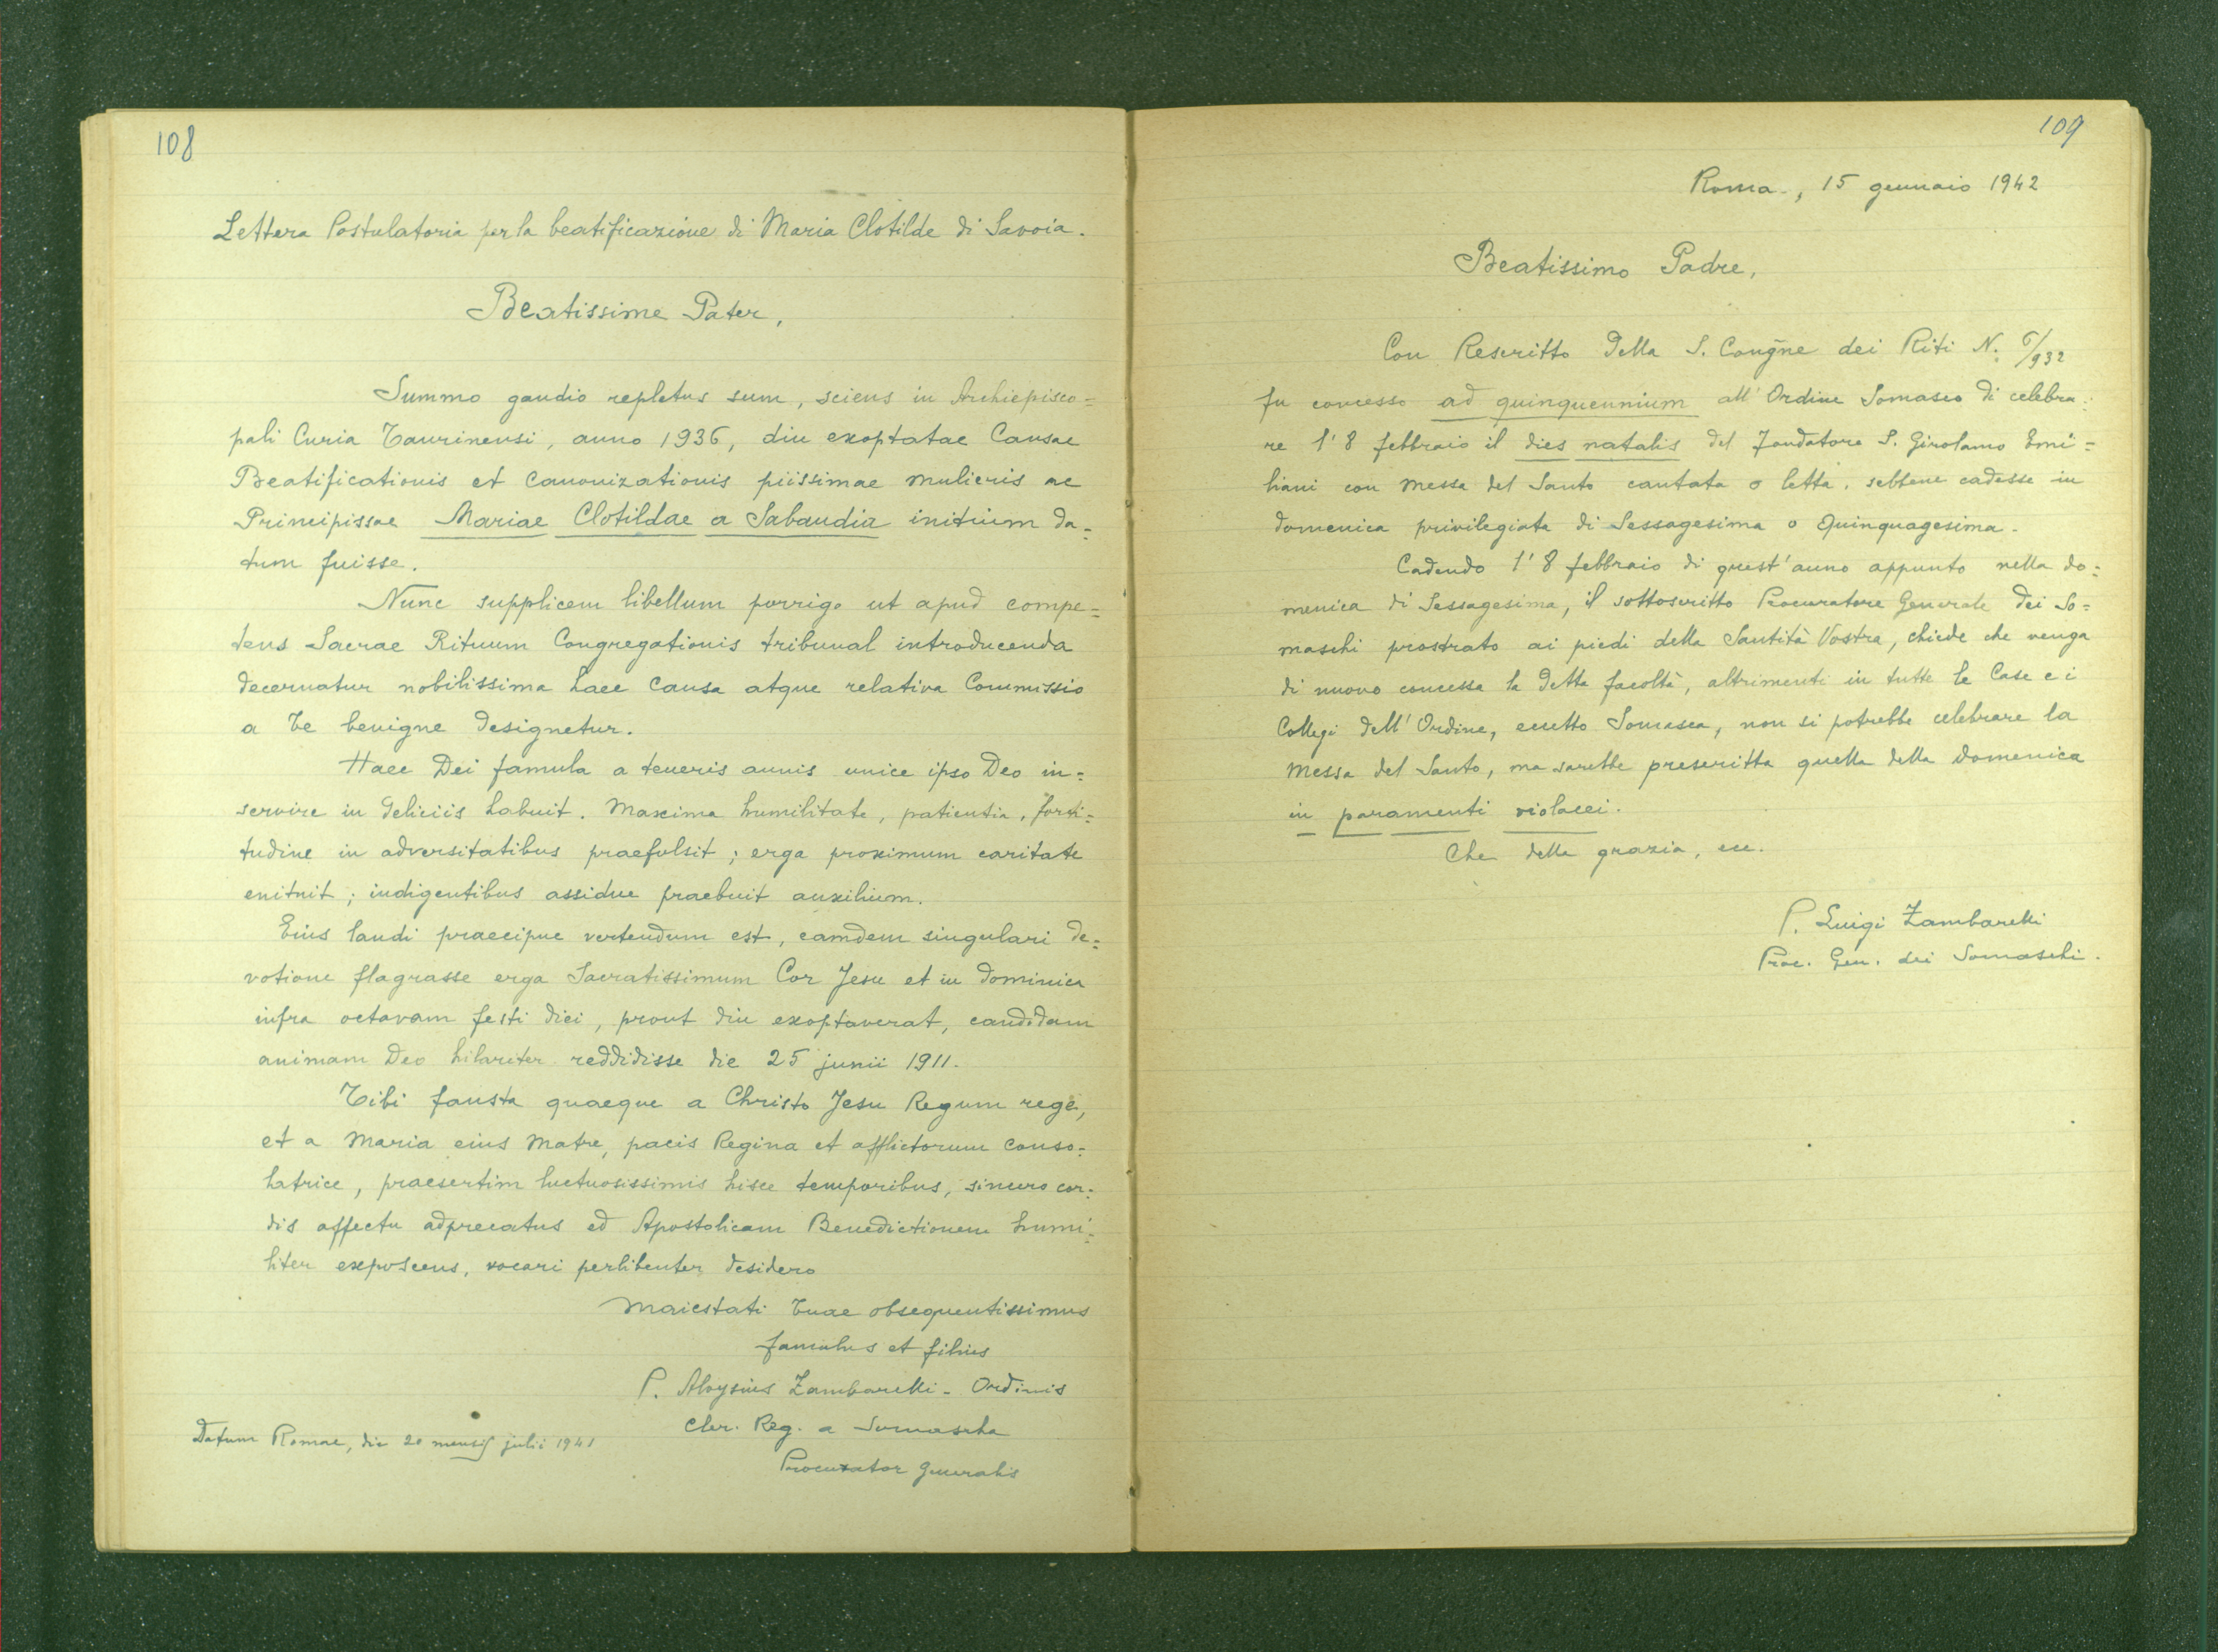 108
Lettera Postulatoria per la beatificazione di Maria Clotilde di Savoia.
Beatissime Pater,
Summo gaudio repletus sum, sciens in Archiepisco=
pali Curia Taurinensi, anno 1936, diu exoptatae Causae
Beatificationis et Canonizationis piissimae mulieris ac
Principissae Mariae Clotildae a Sabaudia initium da=
tum fuisse.
Nunc supplicem libellum porrigo ut apud compe=
tens Sacrae Rituum Congregationis tribunal introducenda
decernatur nobilissima haec Causa atque relativa Commissio
a Te benigne designetur.
Haec Dei famula a teneris annis unice ipso Deo in=
servire in deliciis habuit. Maxima humilitate, patientia, forti=
tudine in adversitatibus praefulsit; erga proximum caritate
enituit; indigentibus assidue praebuit auxilium.
Eius laudi praecipue vertendum est, eamdem singulari de=
votione flagrasse erga Sacratissimum Cor Jesu et in dominica
infra octavam festi diei, prout diu exoptaverat, candidam
animam Deo hilariter reddidisse die 25 junii 1911.
Tibi fausta quaeque a Christo Jesu Regum rege,
et a Maria eius Matre, pacis Regina et afflictorum conso=
latrice, praesertim luctuosissimis hisce temporibus, sincero cor=
dis affectu adprecatus ed Apostolicam Benedictionem humi=
liter exposcens, vocari perlibenter desidero
Maiestati Tuae obsequentissimus
famulus et filius
P. Aloysius Zambarelli - Ordinis
Cler. Reg. a Somascha
Procurator Generalis
Datum Romae, die 20 mensis julii 1941
109
Roma, 15 gennaio 1942
Beatissimo Padre,
Con Rescritto della S. Congñe dei Riti N.
fu concesso ad quinquennium all' Ordine Somasco di celebra=
re l' 8 febbraio il dies natalis del Fondatore S. Girolamo Emi=
liani con Messa del Santo cantata o letta, sebbene cadesse in
domenica privilegiata di Sessagesima o Quinquagesima.
Cadendo l' 8 febbraio di quest'anno appunto nella do=
menica di Sessagesima, il sottoscritto Procuratore Generale dei So=
maschi prostrato ai piedi della Santità Vostra, chiede che venga
di nuovo concessa la detta facoltà, altrimenti in tutte le Case e i
Collegi dell' Ordine, eccetto Somasca, non si potrebbe celebrare la
Messa del Santo, ma sarebbe prescritta quella della domenica
in paramenti violacei.
Che della grazia, ecc.
P. Luigi Zambarelli
Proc. Gen. dei Somaschi.